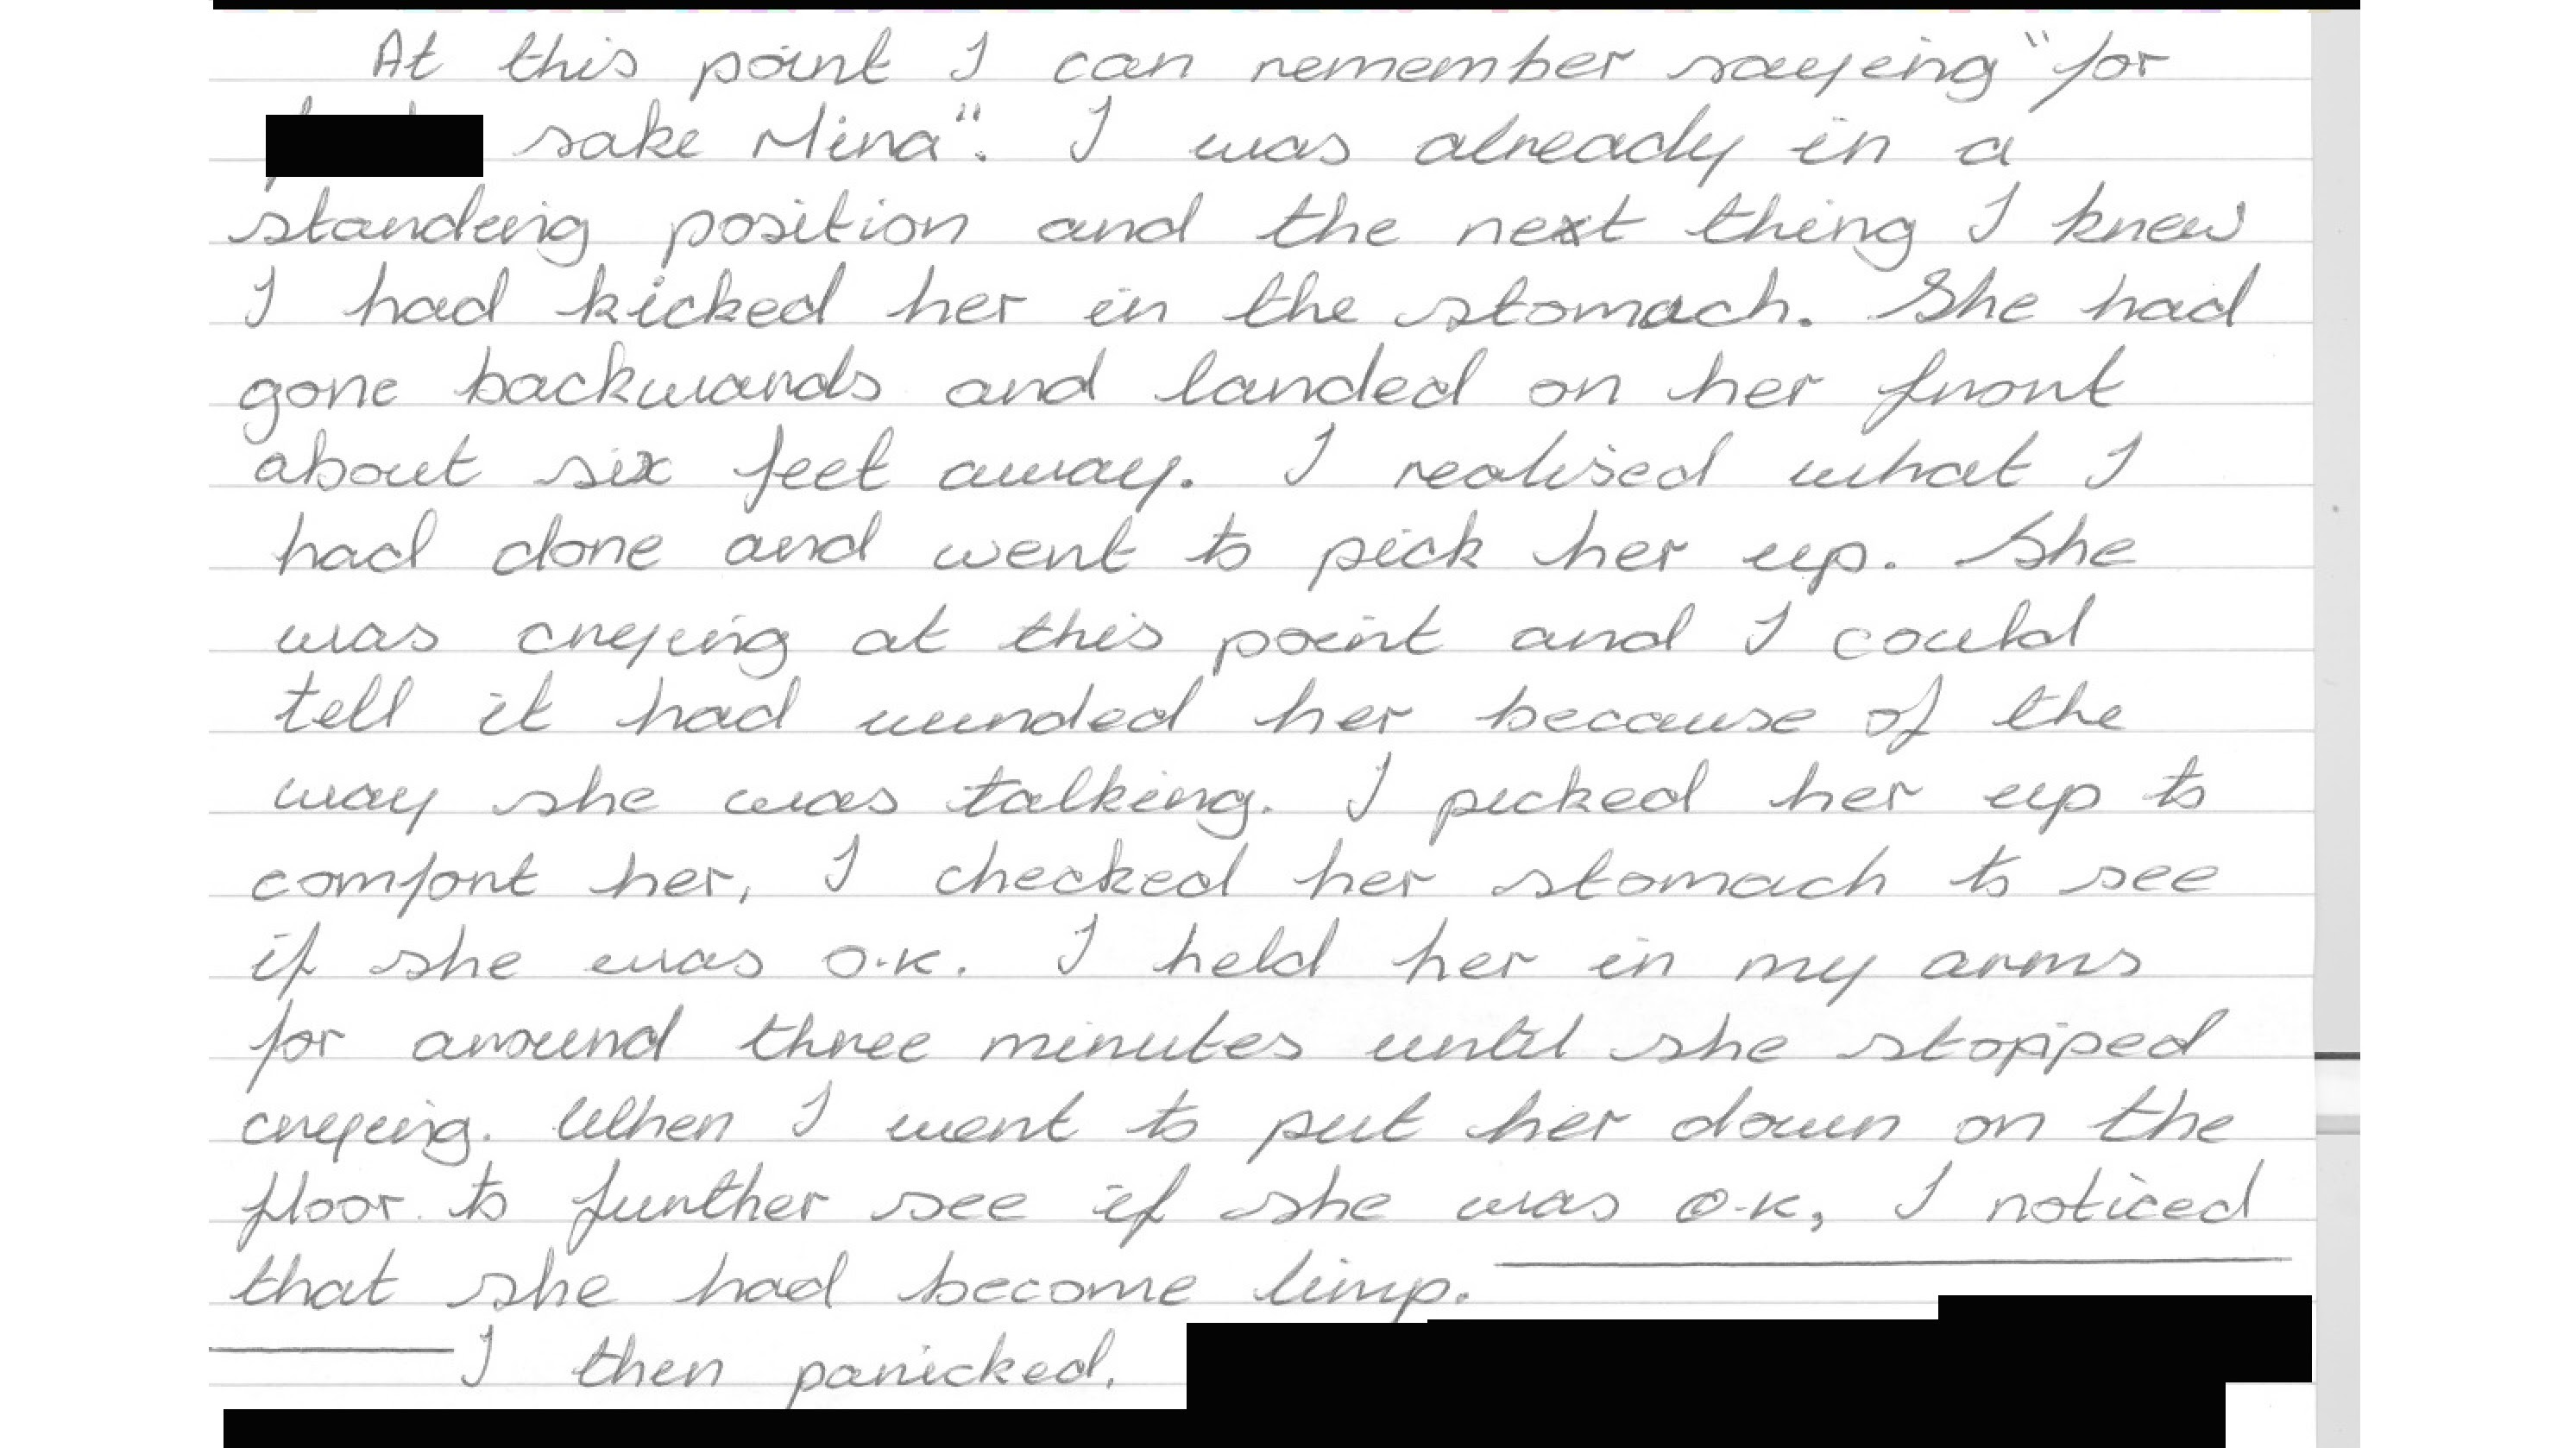 At this point I can remember sayeing "for
sake Mina". I was already in a
standeing position and the next thing I knew
I had kicked her in the stomach. She had
gone backwards and landed on her front
about six feet away. I realised what I
had done and went to pick her up. She
was cryeing at this point and I could
tell it had wunded her because of the
way she was talking. I picked her up to
comfort her, I checked her stomach to see
if she was o.k. I held her in my arms
for around three minutes until she stopped
cryeing. When I went to put her down on the
floor to further see if she was o.k, I noticed
that she had become limp.
I then panicked.